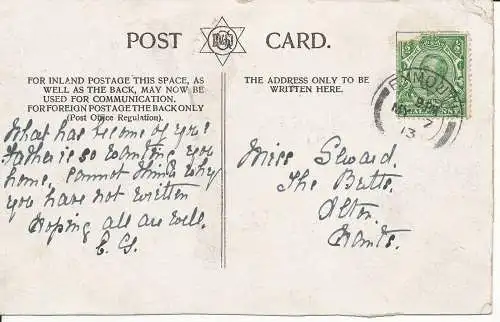 POST CARD.
FOR INLAND POSTAGE THIS SPACE, AS
WELL AS THE BACK, MAY NOW BE
USED FOR COMMUNICATION.
FOR FOREIGN POSTAGE THE BACK ONLY
(Post Office Regulation).
What has become of you?
Father is so wanting you
home, cannot think why
you have not written
Hoping all are well.
E. G.
THE ADDRESS ONLY TO BE
WRITTEN HERE.
Miss Seward.
The Butts.
Alton.
Hants.
EXMOUTH
7
13